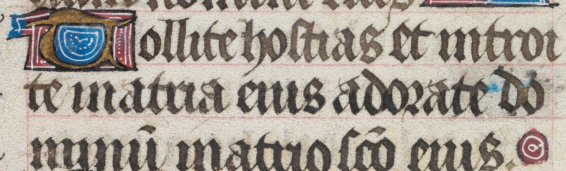 Tollite hostias et introi
te in atria eius adorate do
minũ in atrio sc̃o eius.